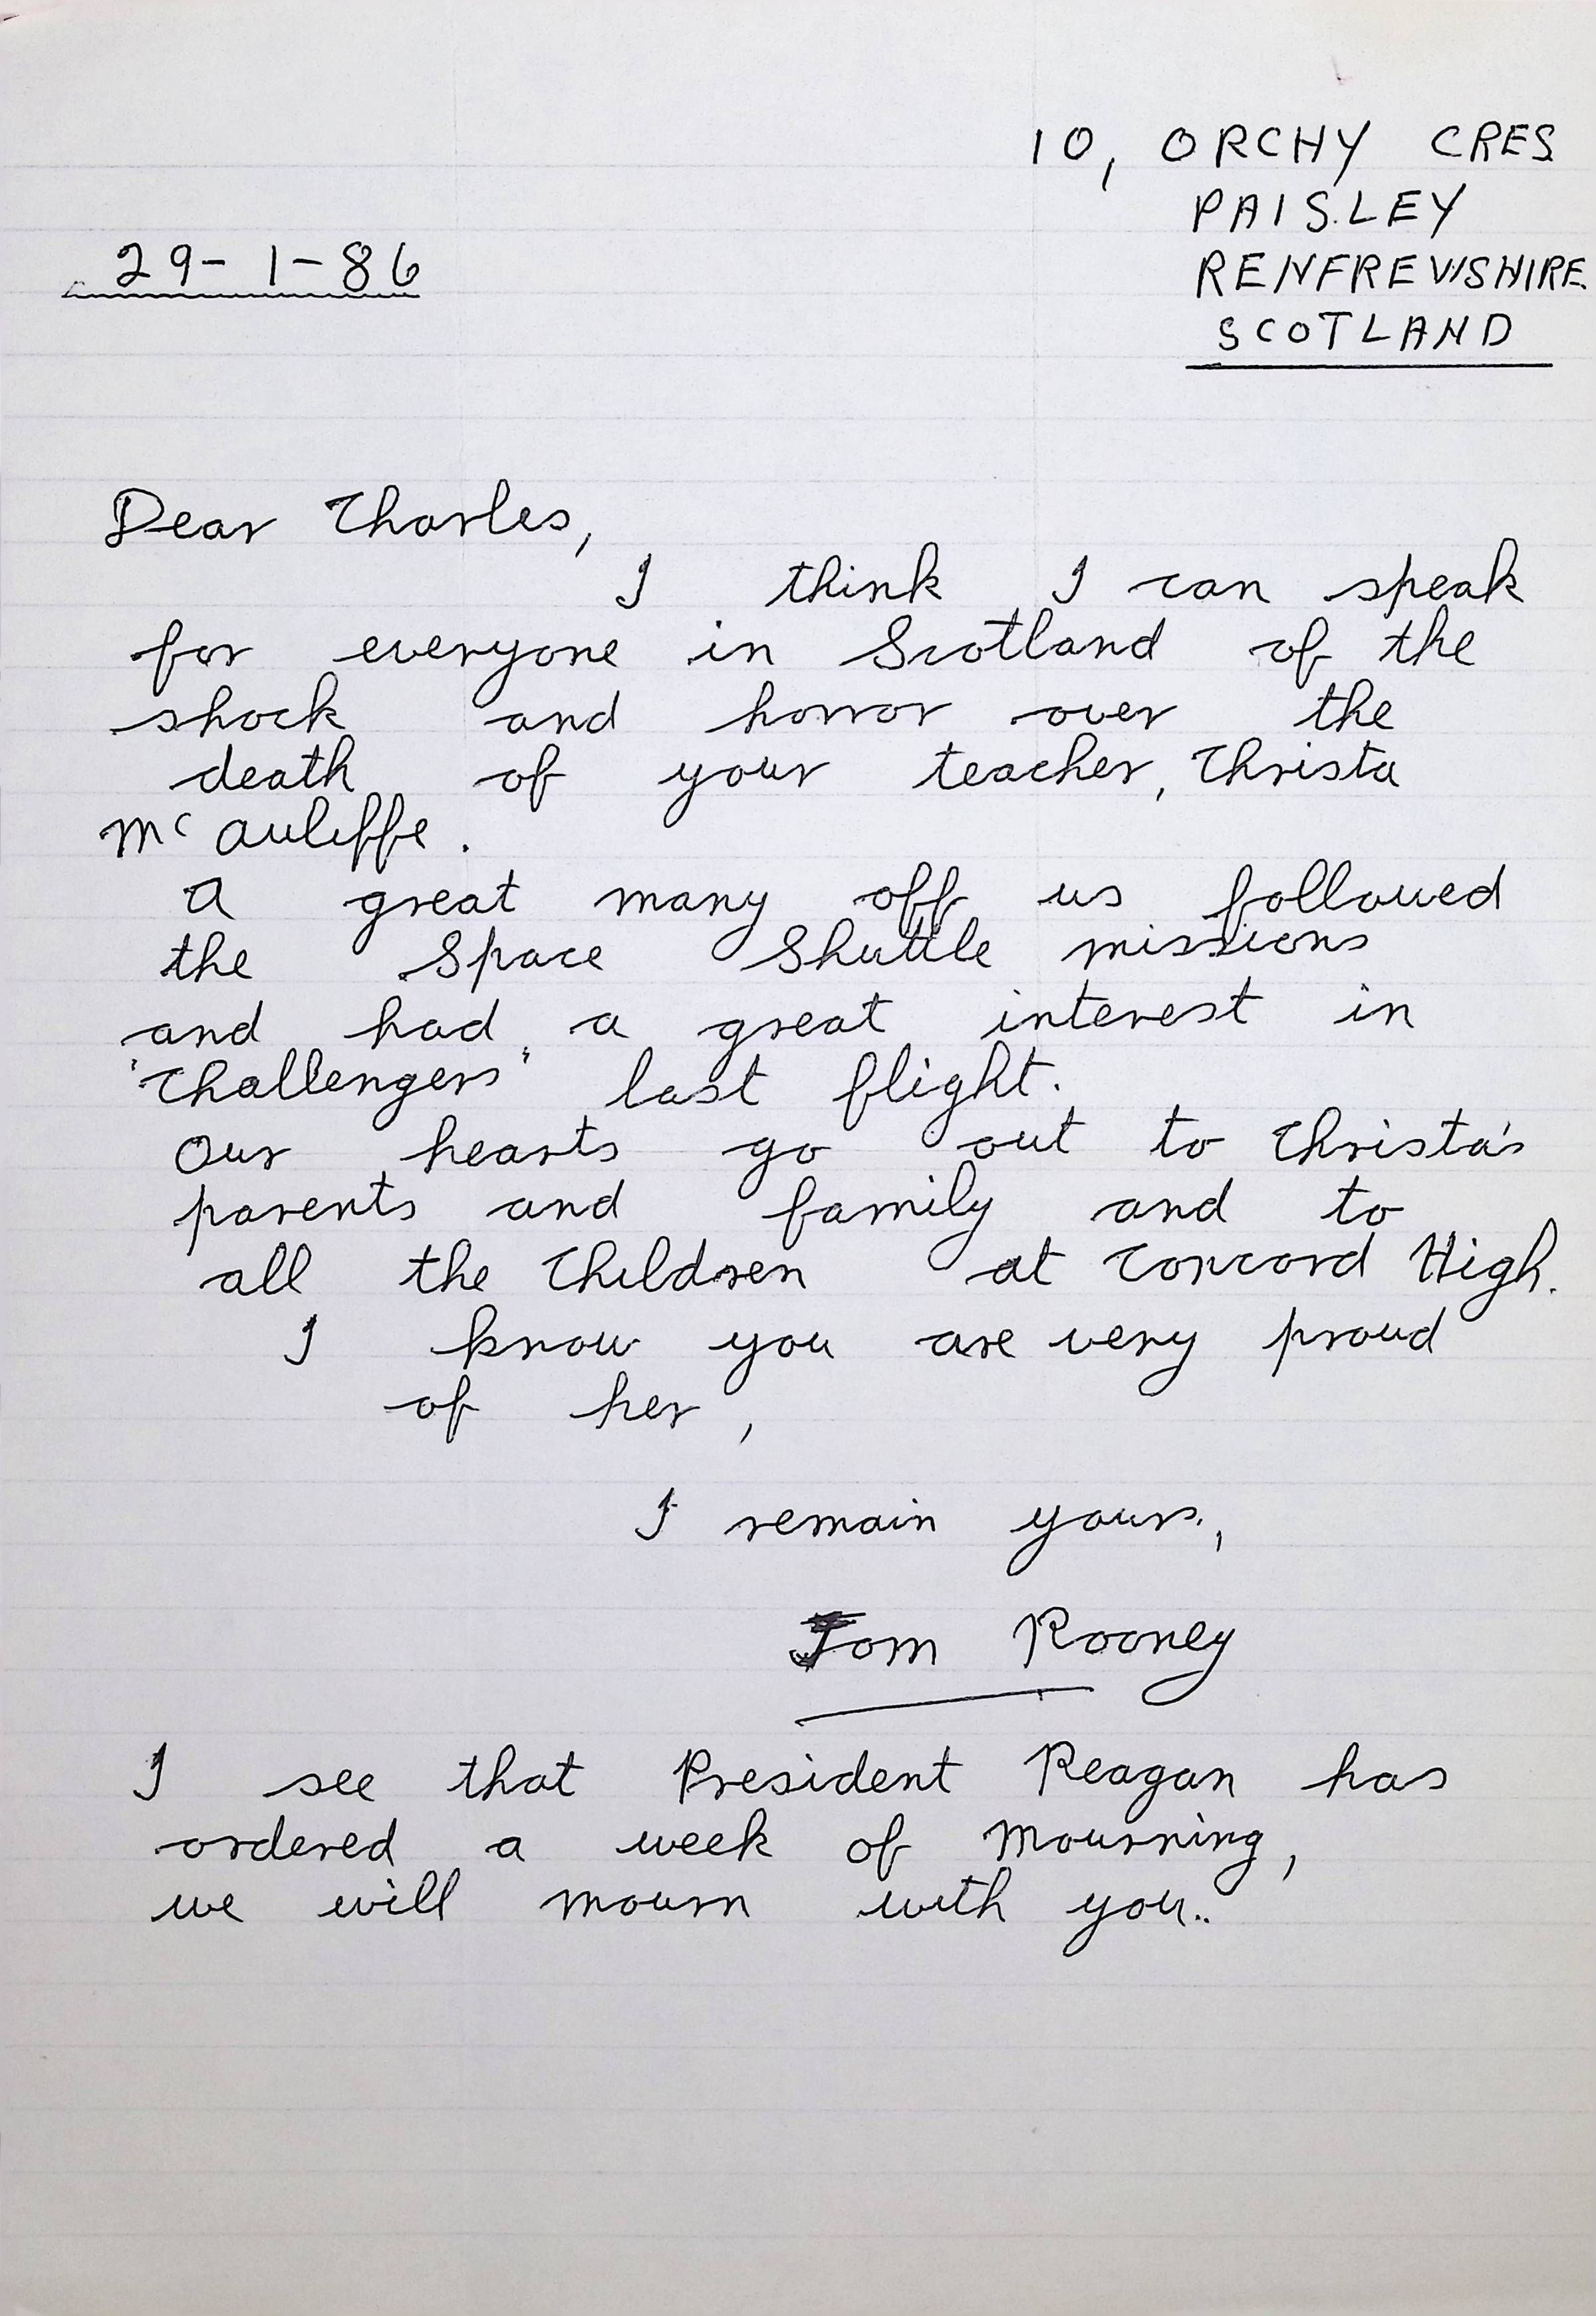 10, ORCHY CRES
PAISLEY
RENFREWSHIRE
SCOTLAND
29-1-86
Dear Charles,
I think I can speak
for everyone in Scotland of the
shock and horror over the
death of your teacher, Christa
Mc Auliffe.
A great many off us followed
the Space Shuttle missions
and had a great interest in
'Challengers' last flight.
Our hearts go out to Christa's
parents and family and to
all the Children at Concord High.
I know you are very proud
of her,
I remain yours,
Tom Rooney
I see that President Reagan has
ordered a week of Mourning,
we will mourn with you..